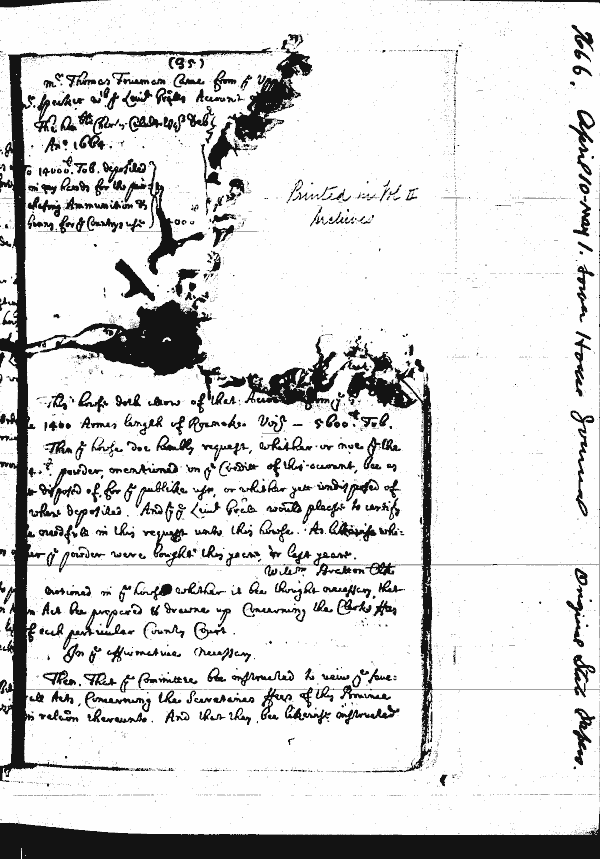 (95)
mr. Thomas Trueman Came from ye Upp
speaker wth ye Leiut Gērls Account
Ano. 1664.
To 14000 t. Tob. deposited
in my hands for the
chasing Ammunition &
for ye Countrys use
0000
Printed in Vol II
Archives
This house doth allow of that Account from ye
1400 Armes length of Roanoke Vizt — 5600 t. Tob.
Then ye house doe humbly request, whether or noe ye the
powder, mentioned in ye Creditt of this account, bee as
disposed of, for ye publike use, or whether yett undisposed of
where deposited. And yt ye Leiut Gēnle would please to certify
in this request unto this house. As likewise whi-
ther ye powder were bought this yeare, or last yeare.
Willm Bretton Clk
motioned in ye house whether it bee thought necessary, that
an Act bee prepared & drawne up Concerning the Clerks ffees
of each perticular County Court.
In ye affirmative necessary
Then. That ye Committee bee instructed to veiw ye seve-
rall Acts, Concerning the Secretaries ffees of this Province
in relaōn thereunto. And that they bee likewise instructed
1666. April 10-May 1. Lower House Journal Original State Papers.